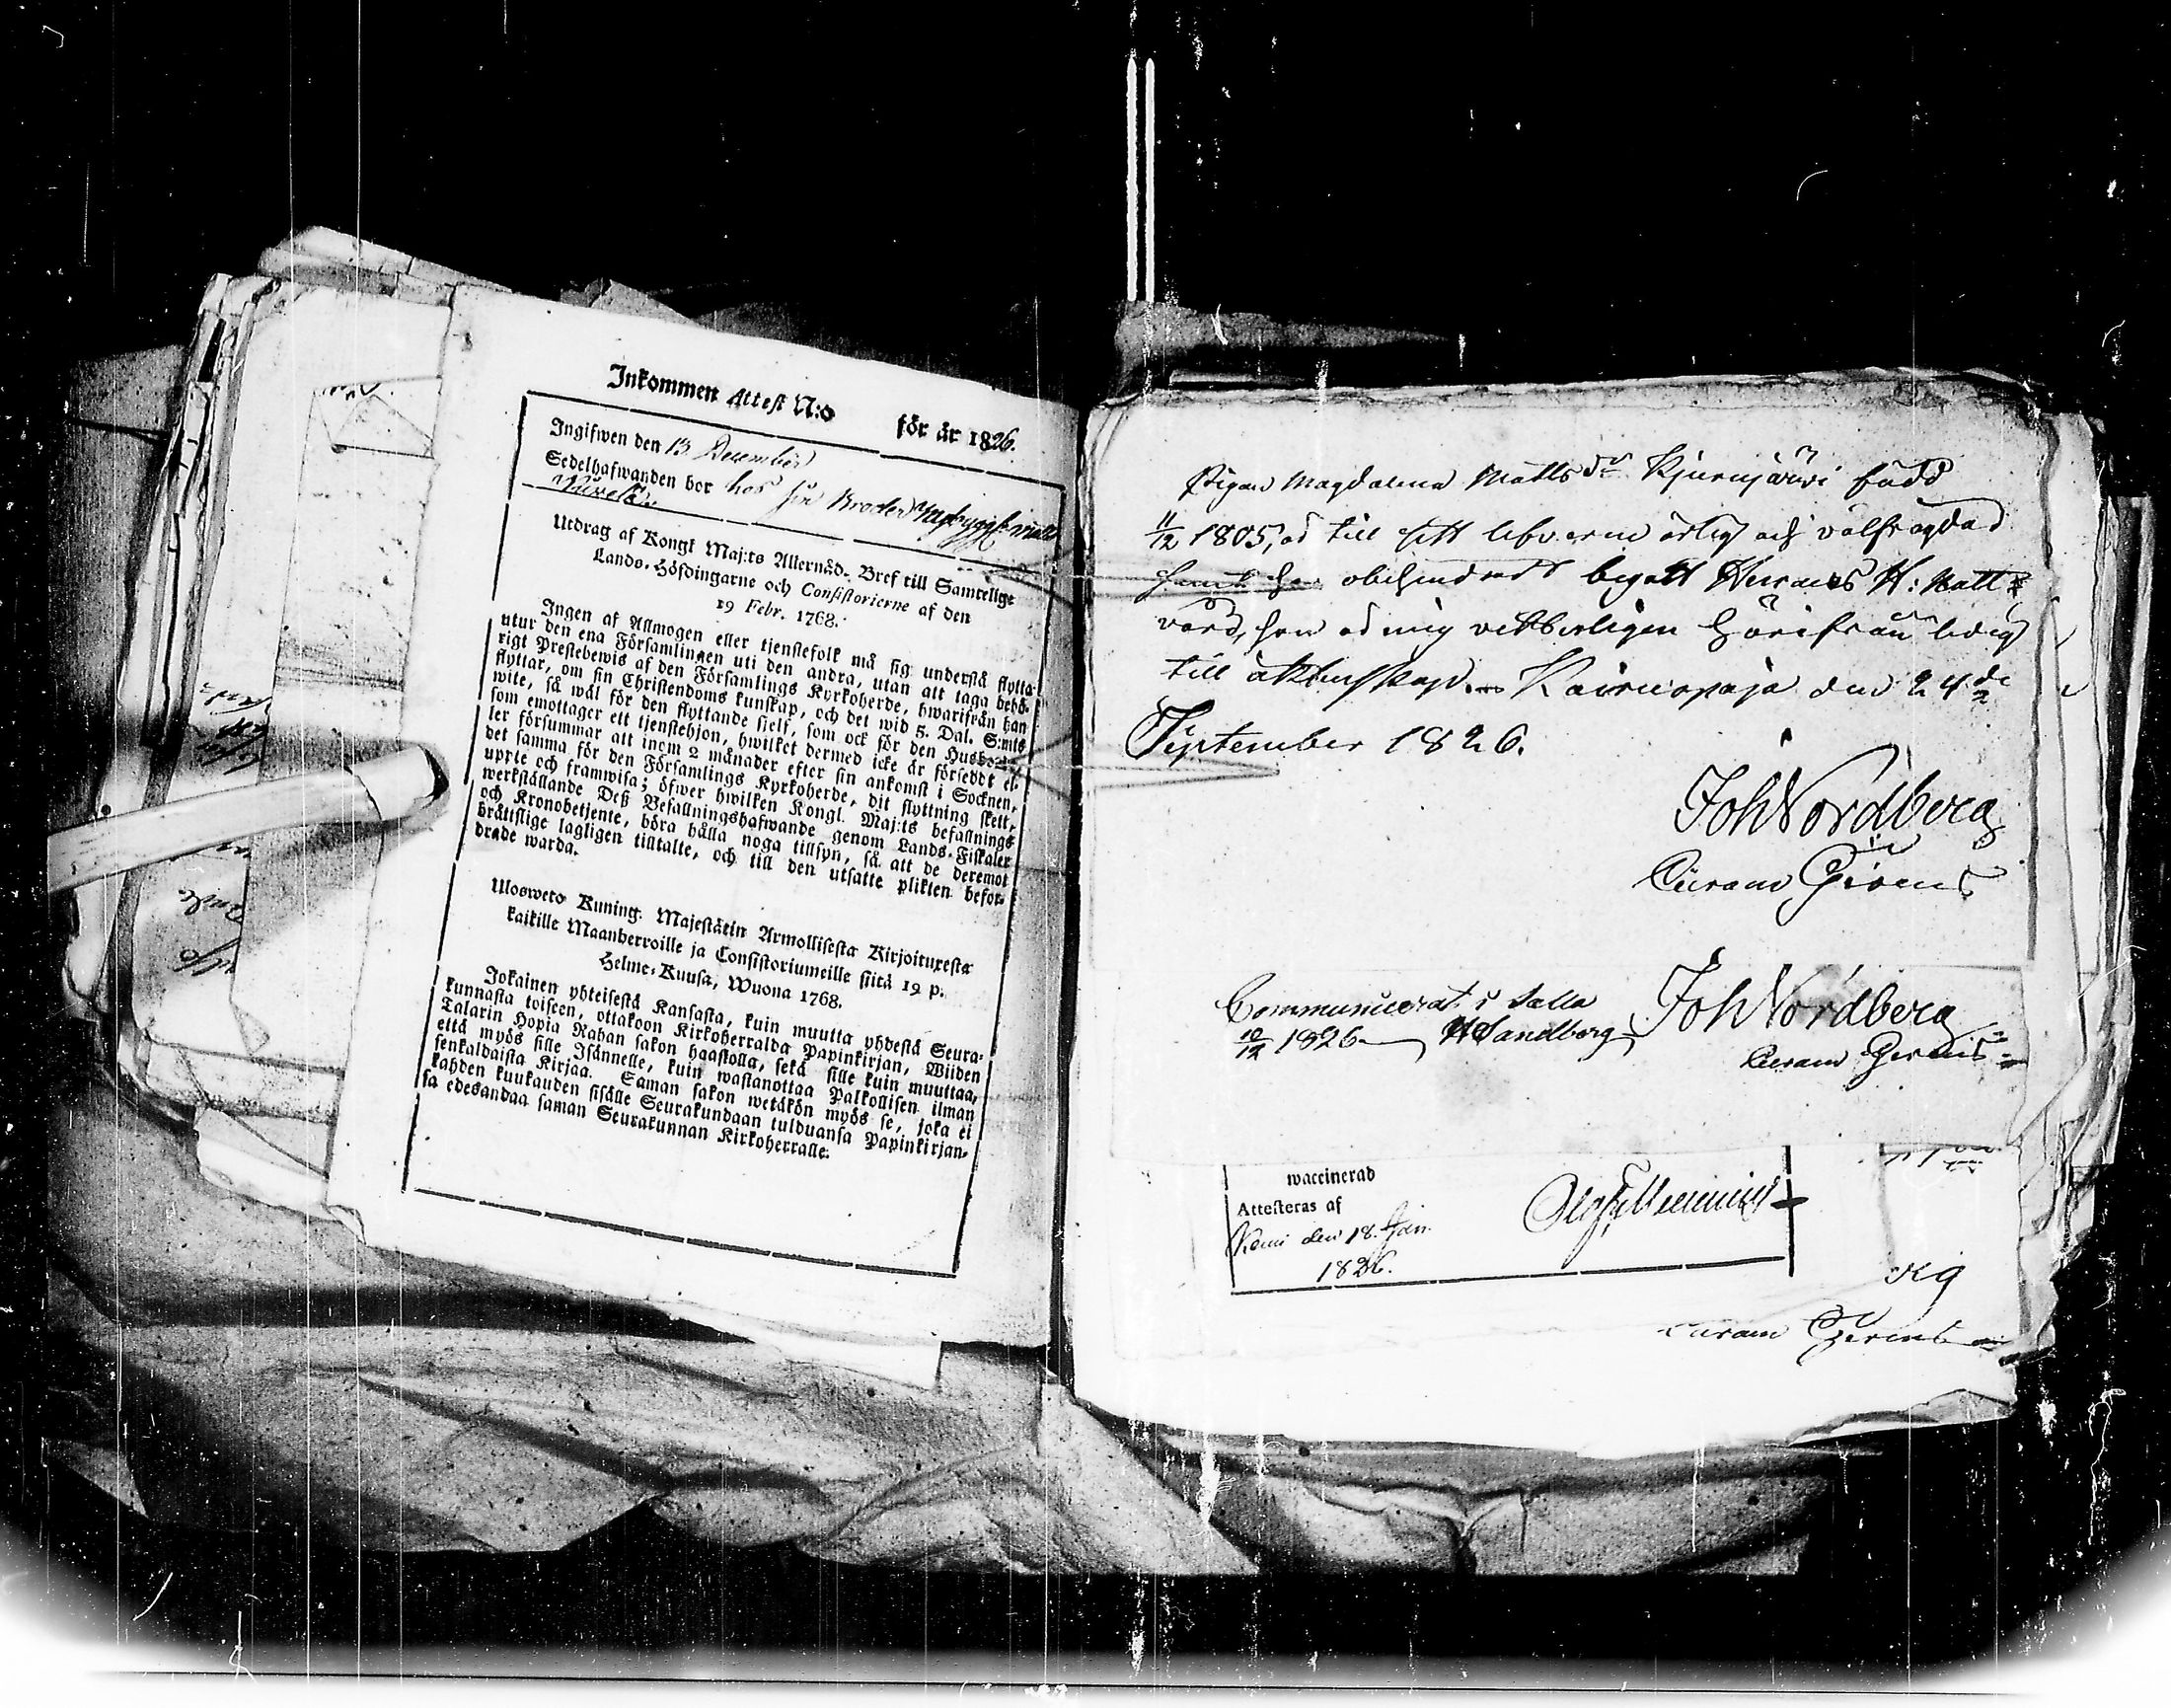 Inkommen Attest N:o för år 1826.
Ingifwen den 13 December
Sedelhafwanden bor hos sin Broder Nybygg:
Utdrag af Kongl Maj:ts Allernåd. Bref till Samtellige
Lands-Höfdingarne och Consistorierne af den
19 Febr. 1768.
Ingen af Allmogen eller tjenstefolk må sig understå flytta
utur den ena Församlingen uti den andra, utan att taga behö-
rigt Prestebewis af den Församlings Kyrkoherde, hwarifrån han
flyttar, om sin Christendoms kunskap, och det wid 5. Dal. S:mts
wite, så wäl för den flyttande sjelf, som ock för den Husbonde
som emottager ett tjenstehjon, hwilket dermed icke är försedt el-
ler försummar att inom 2 månader efter sin ankomst i Socknen,
det samma för den Församlings Kyrkoherde, dit flyttning skett,
upte och framwisa; öfwer hwilken Kongl. Maj:ts befallnings
werkställande Deß Befallningshafwande genom Lands-Fiskaler
och Kronobetjente, böra hålla noga tillsyn, så att de deremot
bråttslige lagligen tilltalte, och till den utsatte plikten befor-
drade warda.
Ulosweto Kuning. Majestätin Armollisesta Kirjoituxesta
kaikille Maanherroille ja Consistoriumeille siitä 19 p.
Helme-Kuusa, Wuona 1768.
Jokainen yhteisestä Kansasta, kuin muutta yhdestä Seura-
kunnasta toiseen, ottakoon Kirkoherralda Papinkirjan, Wiiden
Talarin Hopia Rahan sakon haastolla, sekä sille kuin muuttaa,
että myös sille Isännelle, kuin wastanottaa Palkollisen ilman
senkaldaista Kirjaa. Saman sakon wetäkön myös se, joka ei
kahden kuukauden sisälle Seurakundaan tulduansa Papinkirjan-
sa edesandaa saman Seurakunnan Kirkoherralle.
Pigan Magdalena Matts dr Kjurujärwi född
11/12 1805, är till sitt lefverne ärlig och välfrägdad
obehindradt begått Herrans H: Natt-
vard, hon är mig vetterligen härifrån ledig
till äktenskap. Kairiopaja den 24de
September 1826.
Joh Nordberg
Curam Gerens
Communicerat i Salla
10/12 1826 Sandberg
Joh Nordberg
Curam Gerens
waccinerad
Attesteras af
Kemi den 18. Jan.
1826.
rg
Curam Gerens